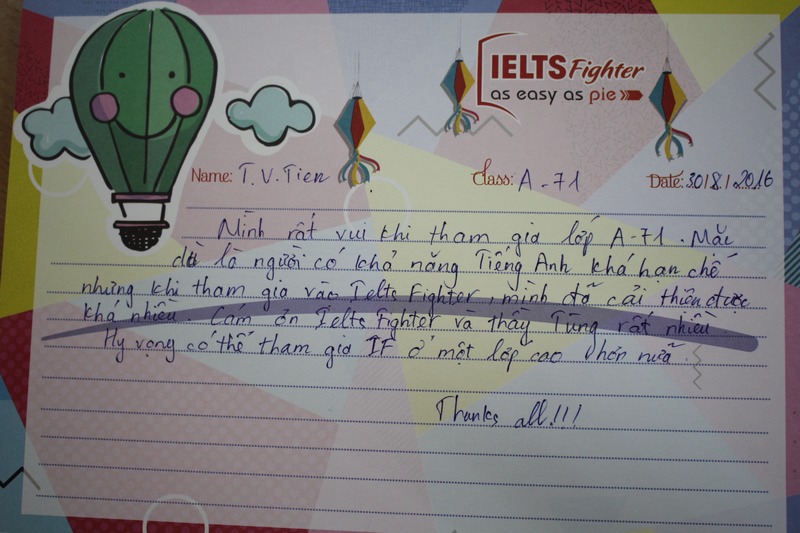 IELTS Fighter
as easy as pie
Name: T.V.Tien
Class: A-71
Date: 30/8/2016
Mình rất vui khi tham gia lớp A-71. Mặc
dù là người có khả năng Tiếng Anh khá hạn chế
nhưng khi tham gia vào Ielts Fighter, mình đã cải thiện được
khá nhiều. Cám ơn Ielts Fighter và thầy Tùng rất nhiều.
Hy vọng có thể tham gia IF ở một lớp cao hơn nữa.
Thanks all!!!